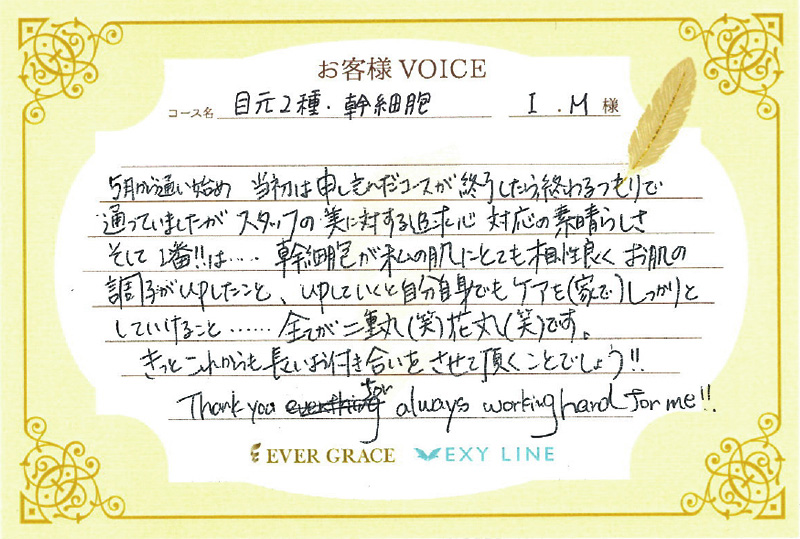 お客様 VOICE
コース名 目元2種・幹細胞 I.M 様
5月から通い始め 当初は申し込んだコースが終了したら終わるつもりで
通っていましたが スタッフの美に対する追求心 対応の素晴らしさ
そして 1番!!は‥‥ 幹細胞が私の肌にとても相性良く お肌の
調子がUPしたこと、UPしていくと自分自身でもケアを(家で)しっかりと
していけること…… 全てが二重丸(笑)花丸(笑)です。
きっとこれからも長いお付き合いをさせて頂くことでしょう!!
Thank you for always working hard for me!!
EVER GRACE EXY LINE